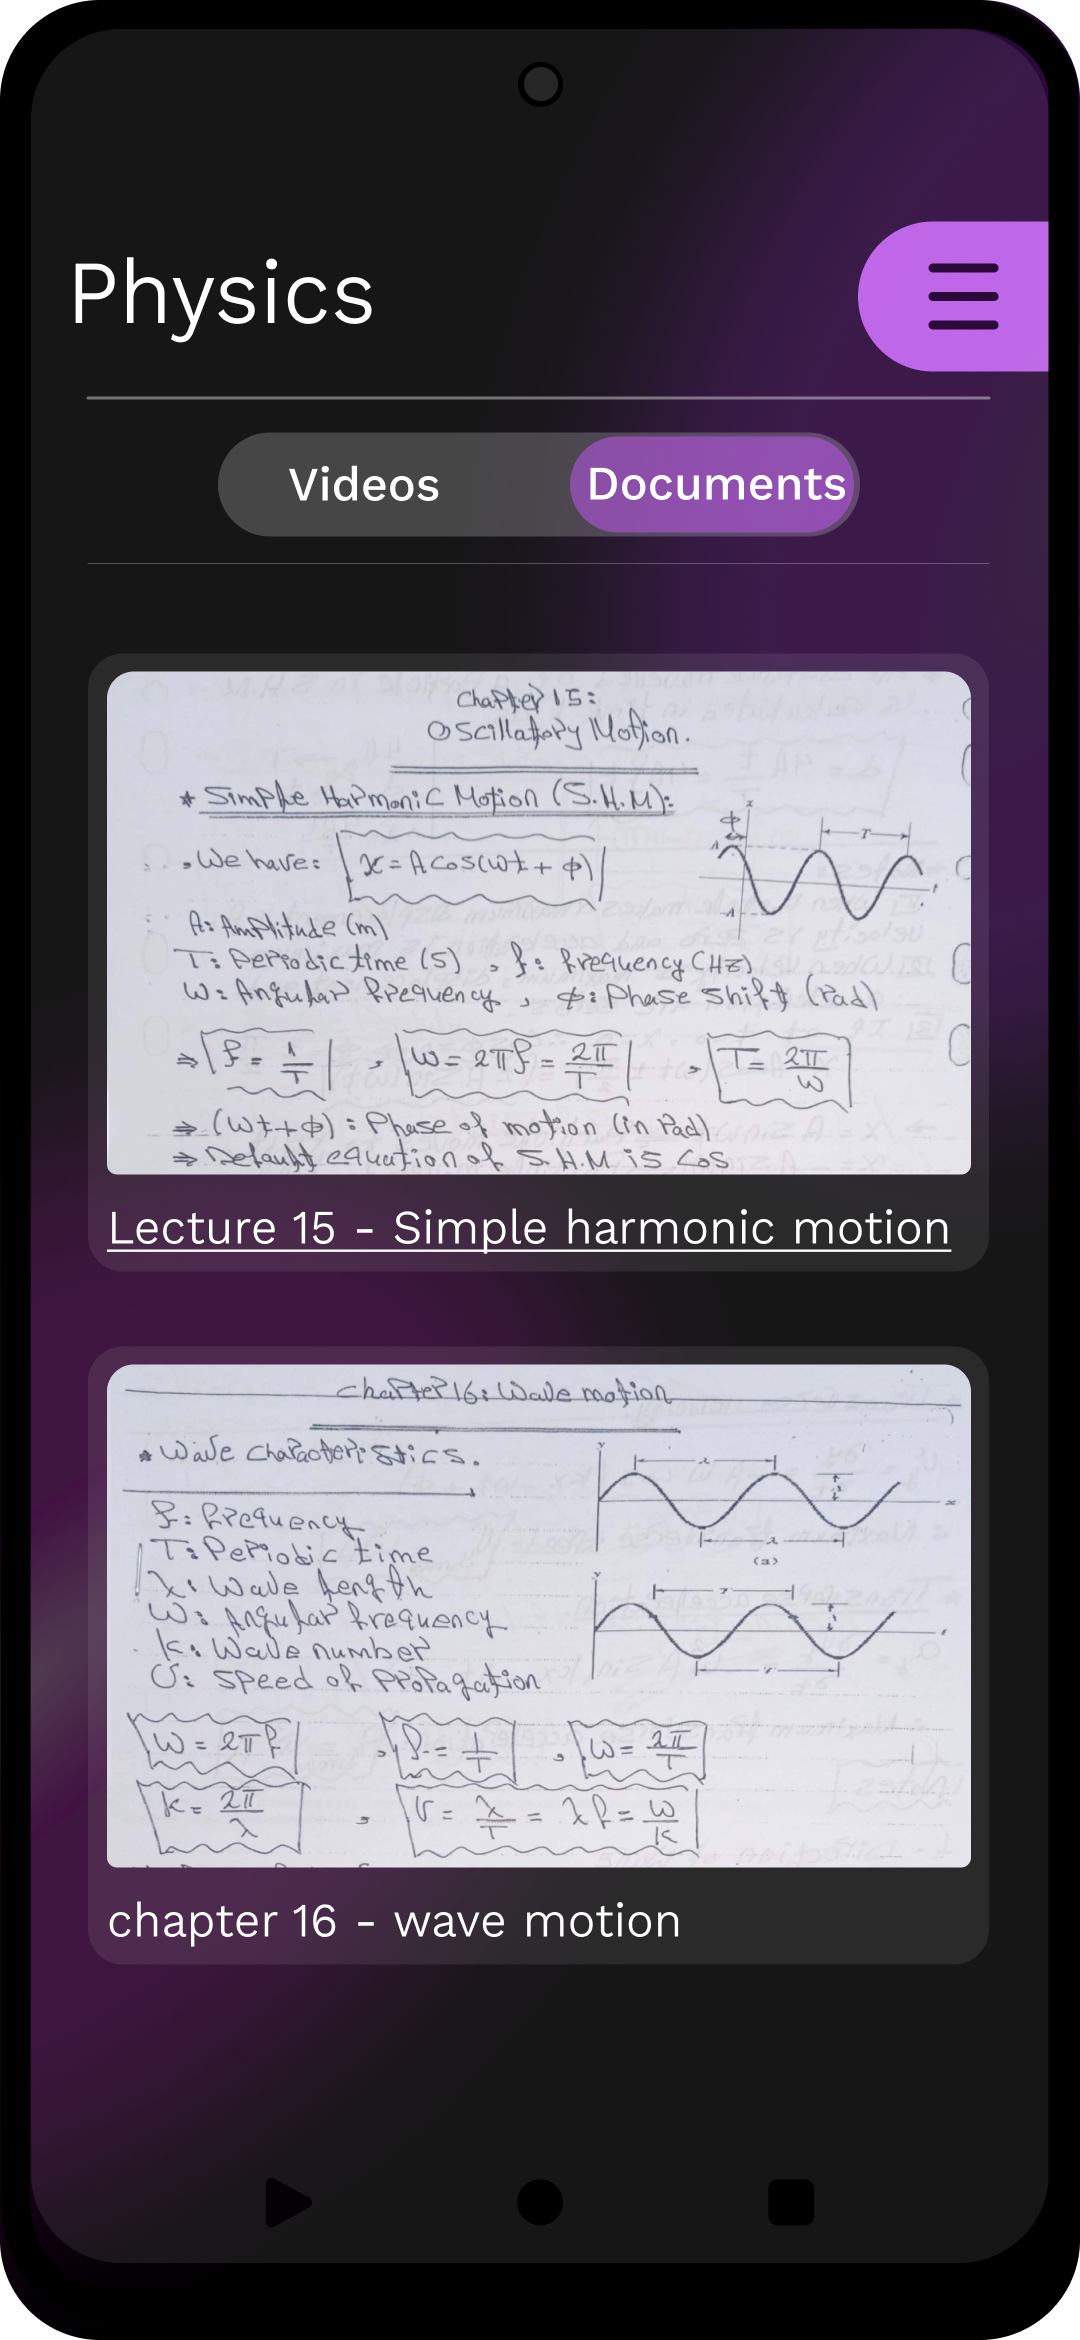 Physics
Videos
Documents
Chapter 15:
Oscillatory Motion.
* Simple Harmonic Motion (S.H.M):
. We have: x = A cos(ωt + ϕ)
ϕ
x
T
A
t
-A
A: Amplitude (m)
T: Periodic time (s) , f: frequency (Hz)
ω: Angular frequency , ϕ: Phase shift (rad)
⇒ f = 1/T , ω = 2πf = 2π/T , T = 2π/ω
⇒ (ωt + ϕ) : Phase of motion (in rad)
⇒ Default equation of S.H.M is cos
Lecture 15 - Simple harmonic motion
Chapter 16: Wave motion
* Wave characteristics.
y
λ
x
λ
(a)
f: frequency
T: Periodic time
λ: Wave length
ω: Angular frequency
k: Wave number
v: speed of propagation
y
T
t
T
ω = 2πf , f = 1/T , ω = 2π/T
k = 2π/λ , v = λ/T = λf = ω/k
chapter 16 - wave motion